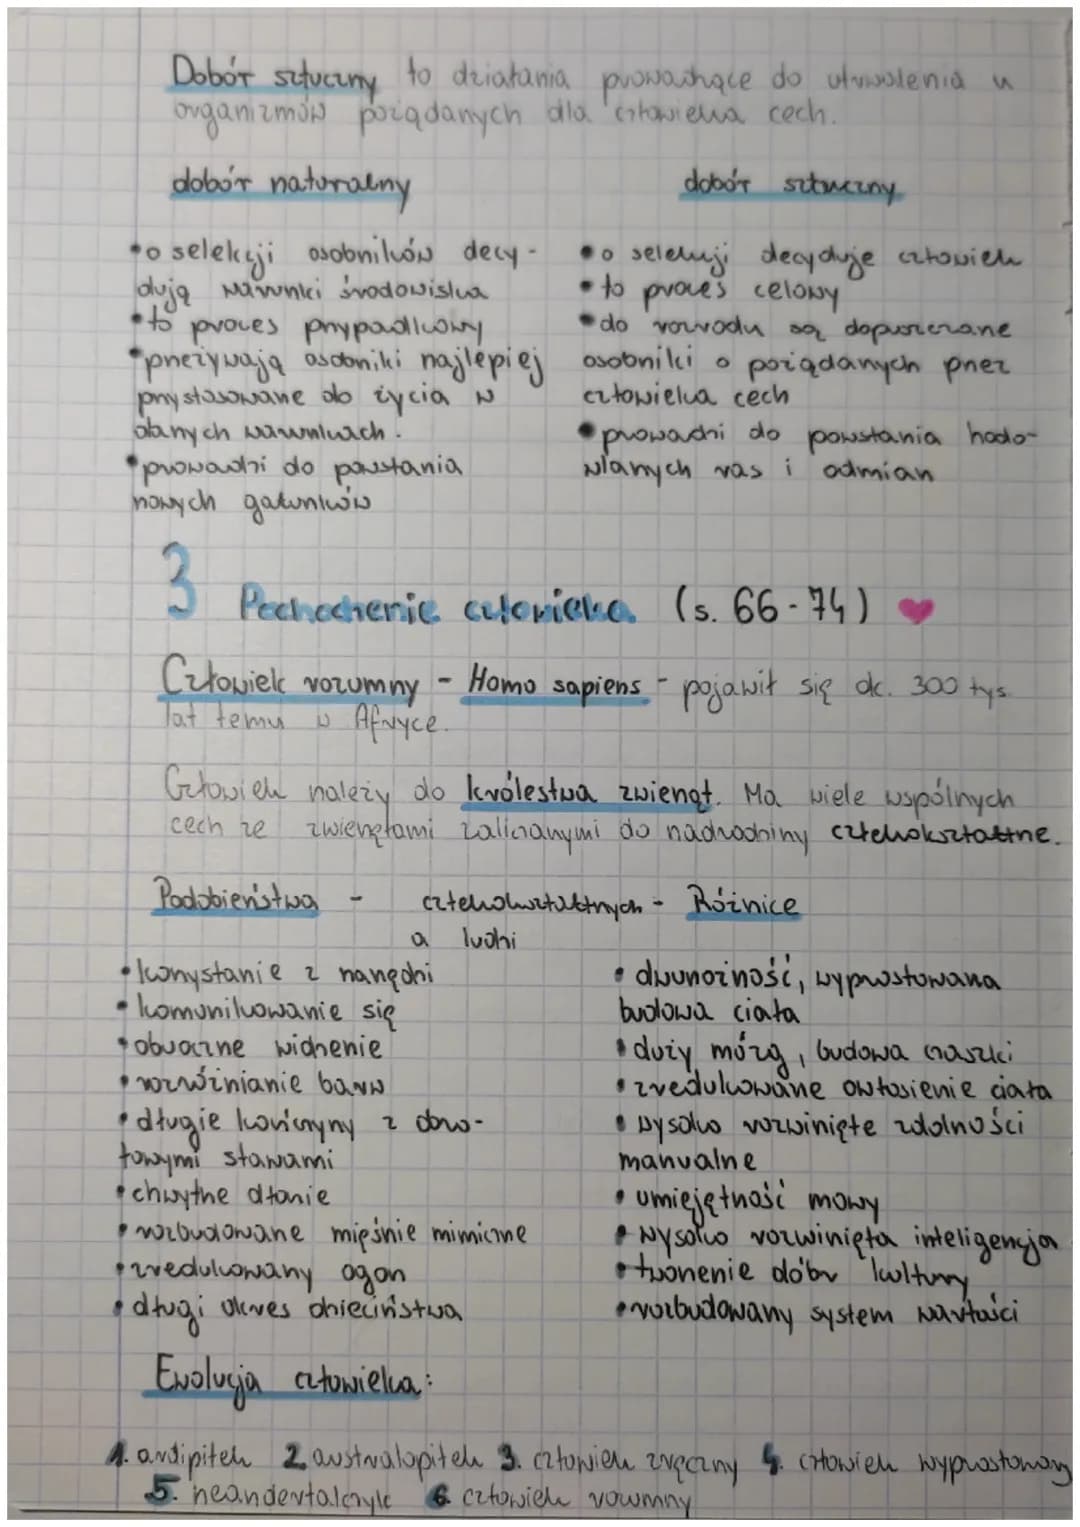 Dobór sztuczny to działania prowadzące do utrwalenia u
organizmów pożądanych dla człowieka cech.
dobór naturalny
dobór sztuczny
•o selekcji osobników decy-
dują warunki środowiska
•to proces przypadkowy
•przeżywają osobniki najlepiej
przystosowane do życia w
danych warunkach.
•prowadzi do powstania
nowych gatunków
•o selekcji decyduje człowiek
•to proces celowy
•do rozrodu są dopuszczane
osobniki o pożądanych przez
człowieka cech
•prowadzi do powstania hodo-
wlanych ras i odmian
3 Pochodzenie człowieka (s. 66-74) ♥
Człowiek rozumny - Homo sapiens - pojawił się ok. 300 tys.
lat temu w Afryce.
Człowiek należy do królestwa zwierząt. Ma wiele wspólnych
cech ze zwierzętami zaliczanymi do nadrodziny człekokształtne.
Podobieństwa - człekokształtnych - Różnice
a ludzi
•korzystanie z narzędzi
•komunikowanie się
•obuoczne widzenie
•rozróżnianie barw
•długie kończyny z obro-
towymi stawami
•chwytne dłonie
•rozbudowane mięśnie mimiczne
•zredukowany ogon
•długi okres dzieciństwa
•dwunożność, wyprostowana
budowa ciała
•duży mózg, budowa czaszki
•zredukowane owłosienie ciała
•wysoko rozwinięte zdolności
manualne
•umiejętność mowy
•wysoko rozwinięta inteligencja
•tworzenie dóbr kultury
•rozbudowany system wartości
Ewolucja człowieka:
1. ardipitek 2. australopitek 3. człowiek zręczny 4. człowiek wyprostowany
5. neandertalczyk 6. człowiek rozumny